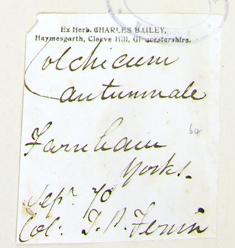 Ex Herb. CHARLES BAILEY,
Haymesgarth, Cleeve Hill, Gloucestershire.
Colchicum
autumnale
Farnham
Yorks.
Sep. 70
Col: